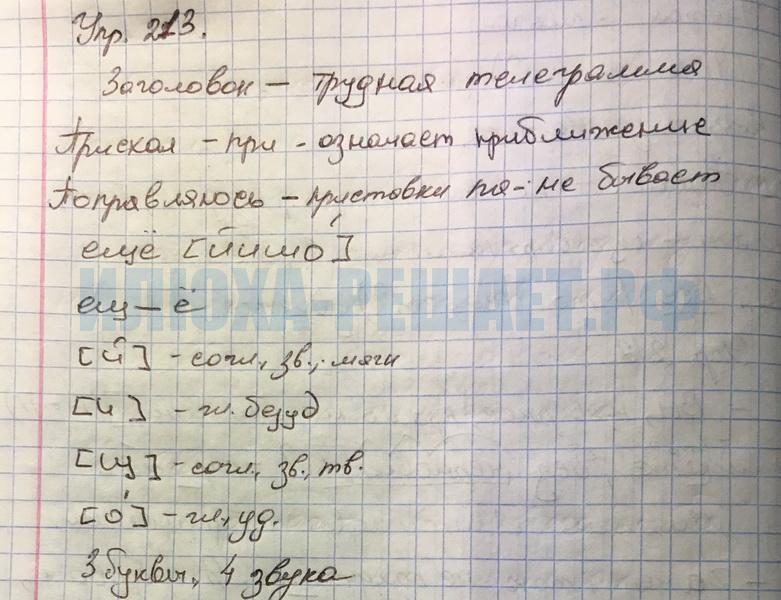 Упр. 213.
Заголовок – трудная телеграмма
Прискак – при - означает приближение
Поправляюсь – приставки па- не бывает
ещё [йишо́]
ещ – ё
ИЛЮХА-РЕШАЕТ.РФ
[й] - согл., зв., мягк
[и] - гл. безуд
[щ] - согл., зв., тв.
[о́] - гл., уд.
3 буквы, 4 звука